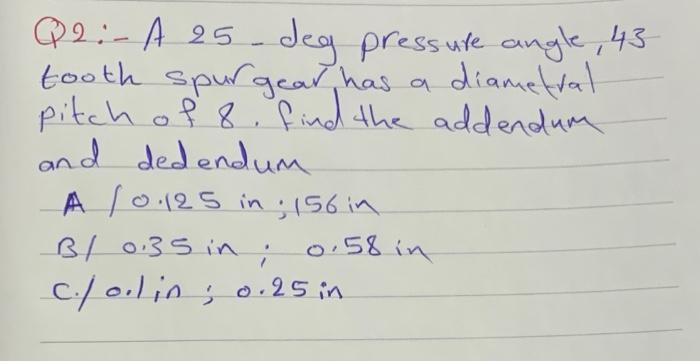 Q2:- A 25-deg pressure angle, 43
tooth spur gear, has a diametral
pitch of 8. find the addendum
and dedendum
A / 0.125 in ; 156 in
B/ 0.35 in ; 0.58 in
C./ 0.1 in ; 0.25 in